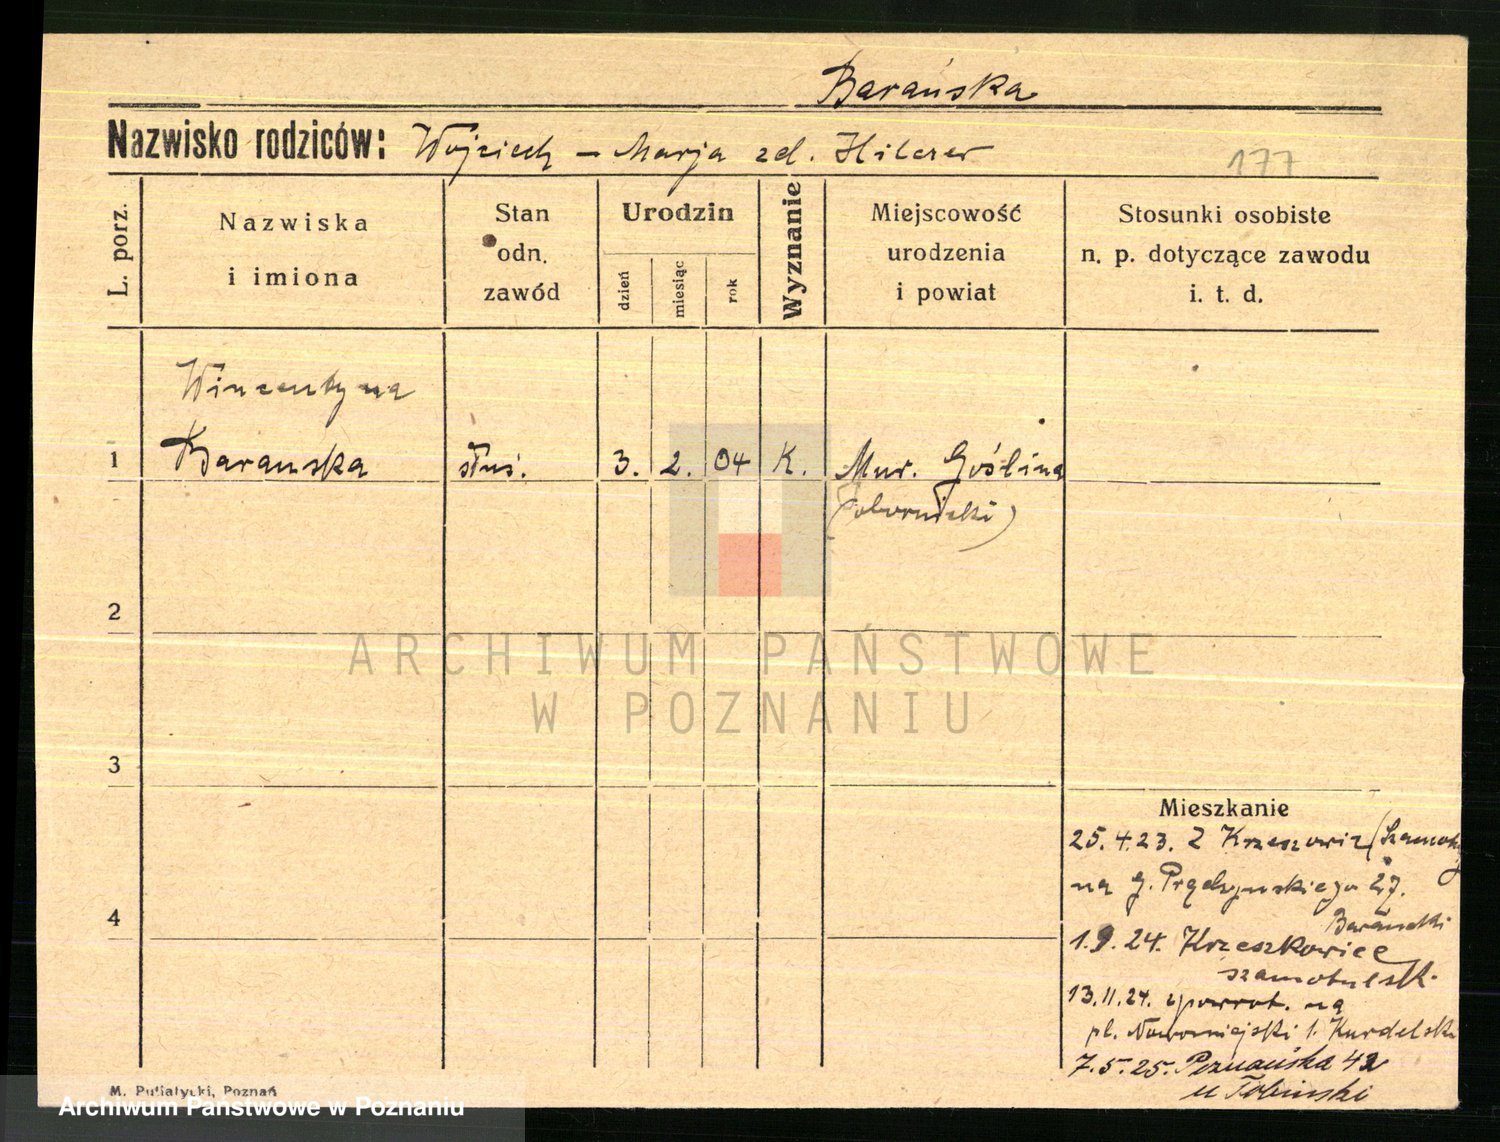 Barańska
Nazwisko rodziców: Wojciech – Marja zd. Hilczer
177
L. porz.
Nazwiska
i imiona
Stan
odn.
zawód
Urodzin
dzień
miesiąc
rok
Wyznanie
Miejscowość
urodzenia
i powiat
Stosunki osobiste
n. p. dotyczące zawodu
i. t. d.
Wincentyna
1 Baranska służ. 3. 2. 04 K. Mur. Goślina
(obornicki)
2
ARCHIWUM PAŃSTWOWE
W POZNANIU
3
4
Mieszkanie
25.4.23. Z (Szamotuły
na g. Prądzyńskiego 27.
Barański
1.9.24. Krzeszkowice
szamotulsk.
13.11.24. zpowrot. na
pl. Nowomiejski 1. Kurdelski
7.5.25. Poznańska 42
u
M. Putiatycki, Poznań
Archiwum Państwowe w Poznaniu